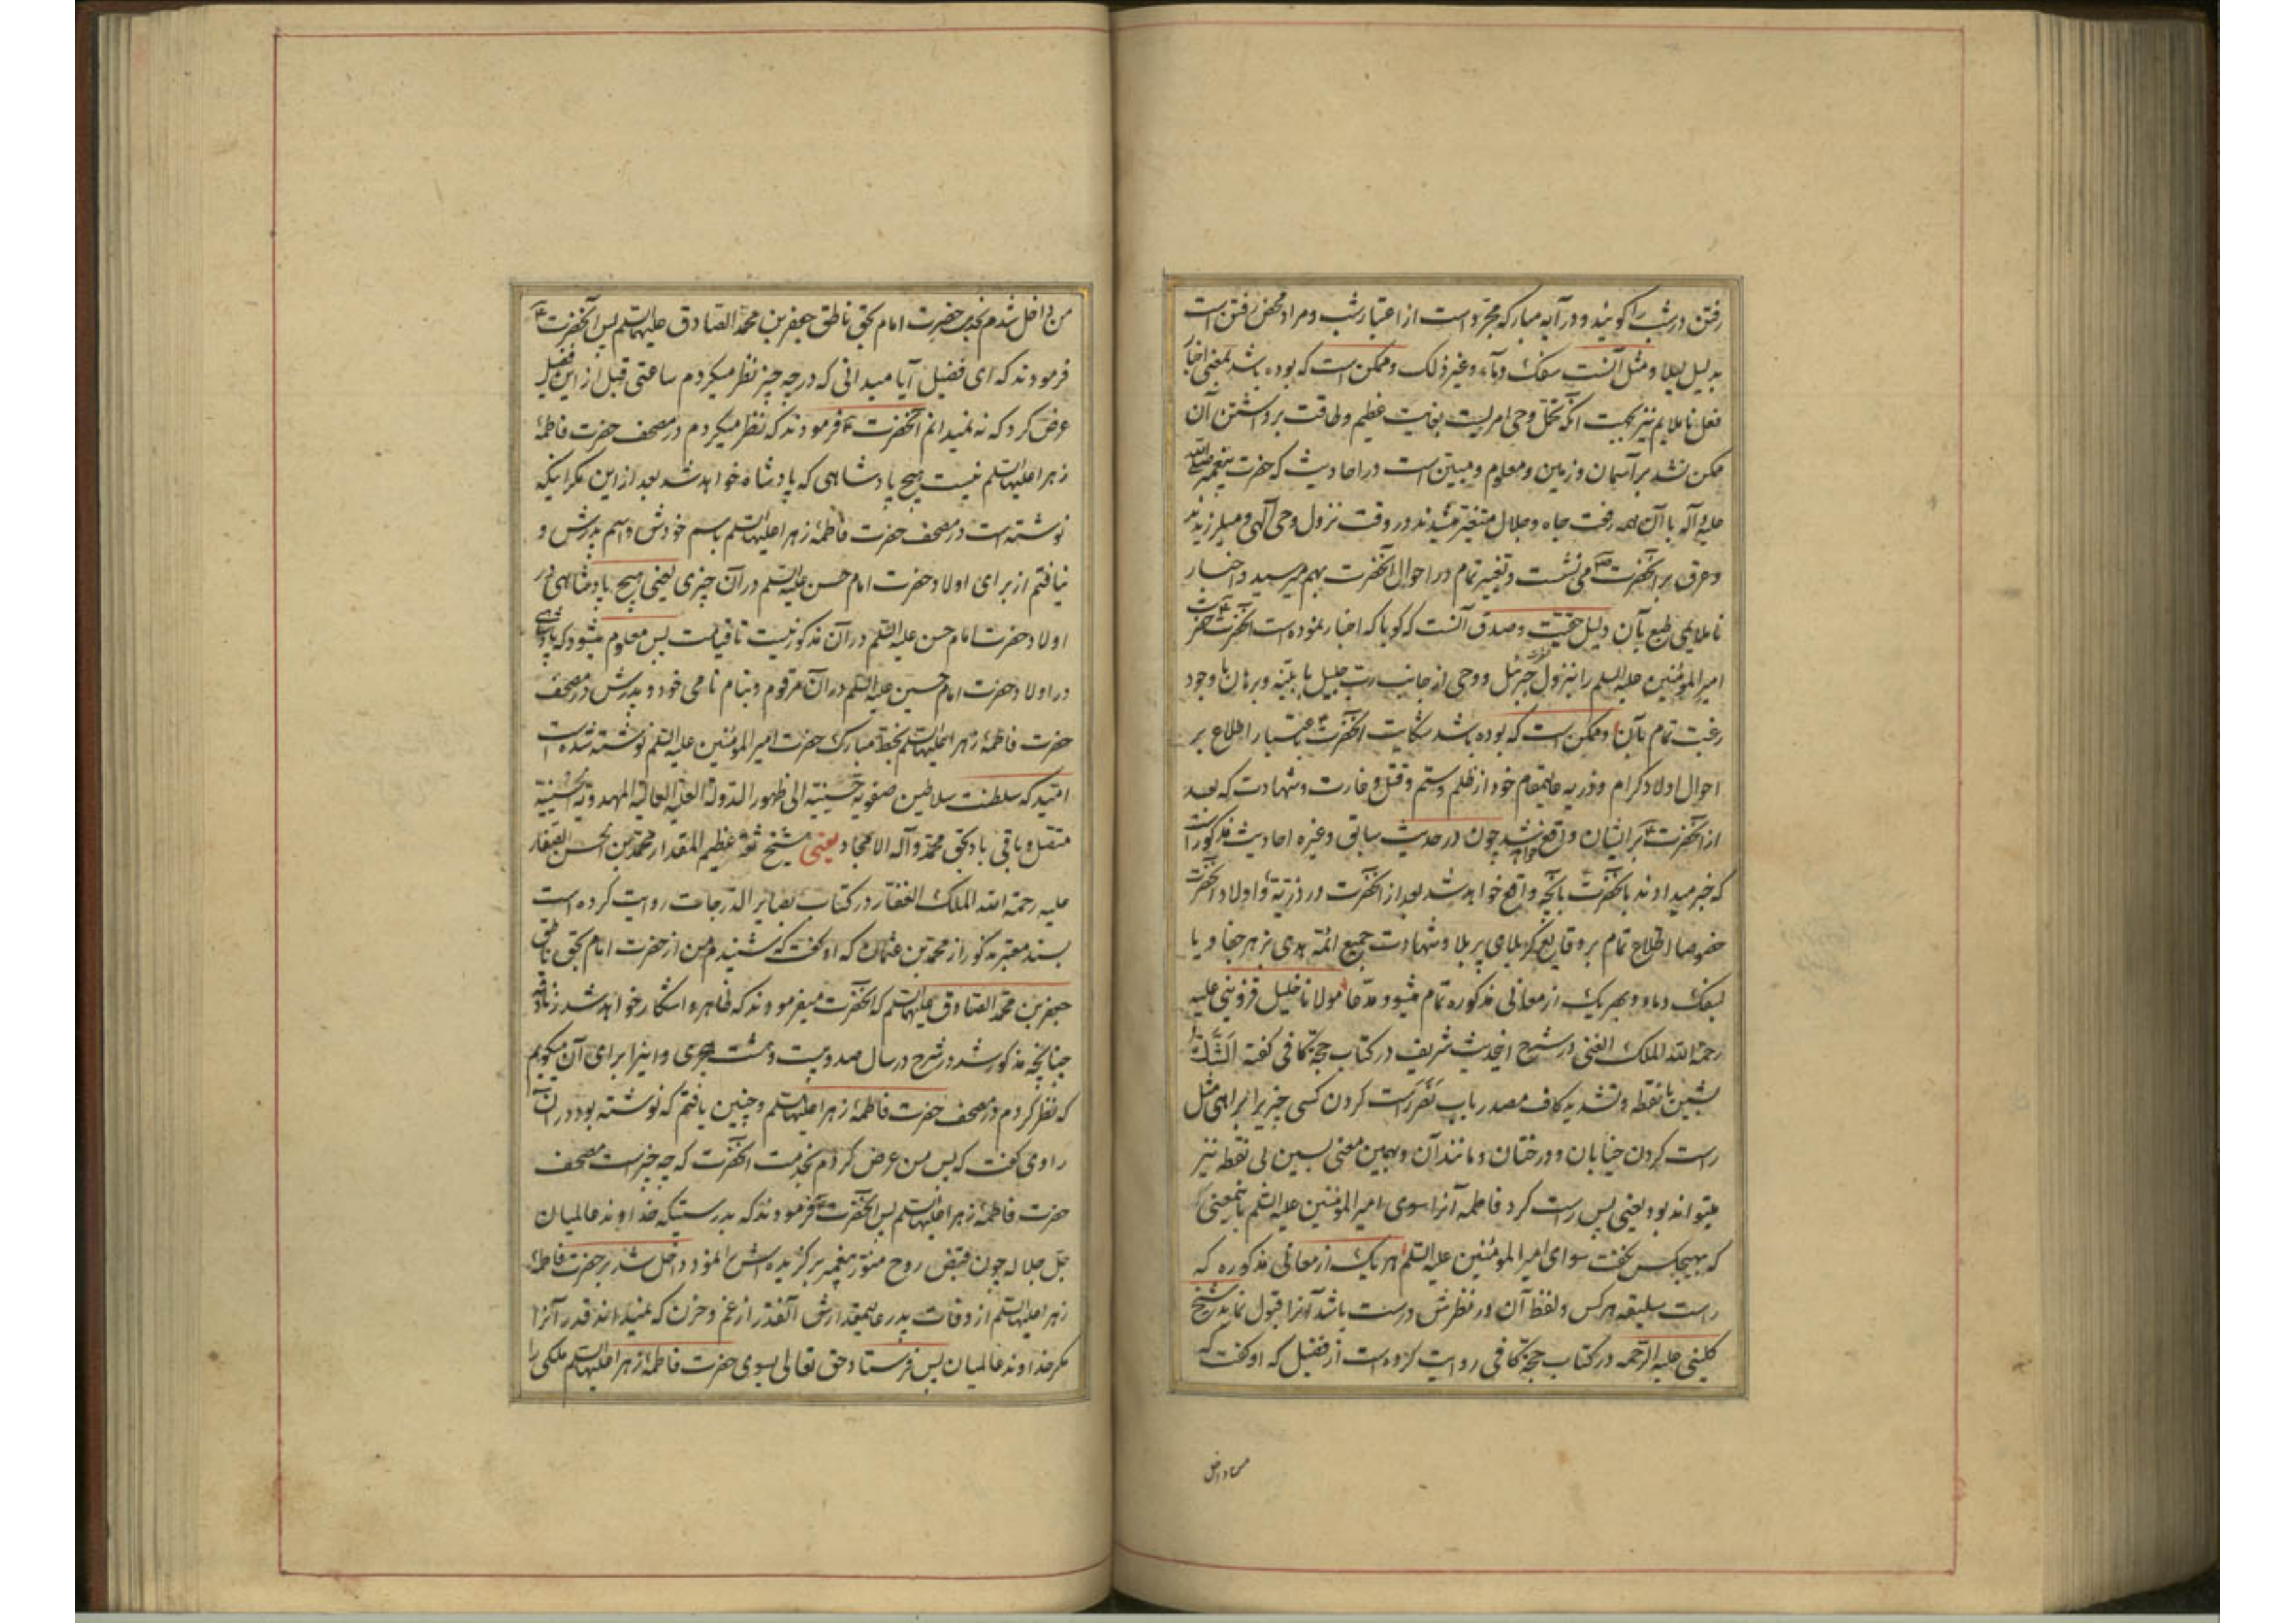 رفتن در شب را کویند و در آیه مبارکه مجرد است از اعتبار شب و مراد محض رفتن است
بدلیل لیلا و مثل آنست سفک دماء و غیر ذلک و ممکن است که بوده باشد بمعنی اخبار
فعل ناملایم نیز بجهت آنکه تحمل وحی امریست بغایت عظیم و طاقت برداشتن آن
ممکن نشد بر آسمان و زمین و معلوم و مبین است در احادیث که حضرت پیغمبر صلی الله
علیه و آله با آن همه رفعت جاه و جلال متغیر میشدند در وقت نزول وحی الهی و میلرزیدند
و عرق بر آنحضرت می نشست و تغییر تمام در احوال آنحضرت بهم میرسید و اخبار
ناملایمی طبع بآن دلیل حقیت و صدق آنست که کویا که اخبار نموده است آنحضرت حضرت
امیر المؤمنین علیه السلم را بنزول جبرئیل و وحی از جانب رب جلیل با بینه و برهان با وجود
رغبت تمام بآن و ممکن است که بوده باشد شکایت آنحضرت باعتبار اطلاع بر
احوال اولاد کرام و ذریه عالیمقام خود از ظلم و ستم و قتل و غارت و شهادت که بعد
از آنحضرت بر ایشان واقع خواهد شد چون در حدیث سابق و غیره احادیث مذکور است
که خبر میدادند بآنحضرت بآنچه واقع خواهد شد بعد از آنحضرت در ذریه و اولاد آنحضرت
خصوصا اطلاع تمام بر وقایع کربلای پر بلا و شهادت جمیع ائمه هدی بزهر جفا و یا
بسفک دماء و بهر یک از معانی مذکوره تمام میشود مدعا مولانا خلیل قزوینی علیه
رحمة الله الملک الغنی در شرح اینحدیث شریف در کتاب حجة کافی کفته الشک
بشین با نقطه و تشدید کاف مصدر باب نصر راست کردن کسی چیزیرا براهی مثل
راست کردن خیابان و درختان و مانند آن و بهمین معنی بسین بی نقطه نیز
میتواند بود یعنی پس راست کرد فاطمه آنرا سوی امیر المؤمنین علیه السلم باینمعنی
که بهیچکس نکفت سوای امیر المؤمنین علیه السلم هر یک از معانی مذکوره که
راست سلیقه هر کس و لفظ آن در نظرش درست باشد آنرا قبول نماید شیخ
کلینی علیه الرحمه در کتاب حجة کافی روایت کرده است از فضیل که او کفت که
من داخل
من داخل شدم بخدمت حضرت امام بحق ناطق جعفر بن محمد الصادق علیهما السلم پس آنحضرت
فرمودند که ای فضیل آیا میدانی که در چه چیز نظر میکردم ساعتی قبل از این فضیل
عرض کرد که نه نمیدانم آنحضرت فرمودند که نظر میکردم در مصحف حضرت فاطمه
زهرا علیها السلم نیست هیچ پادشاهی که پادشاه خواهد شد بعد از این مکر اینکه
نوشته است در مصحف حضرت فاطمه زهرا علیها السلم باسم خودش و اسم پدرش و
نیافتم از برای اولاد حضرت امام حسن علیه السلم در آن چیزی یعنی هیچ پادشاهی در
اولاد حضرت امام حسن علیه السلم در آن مذکور نیست تا قیامت پس معلوم میشود که پادشاهی
در اولاد حضرت امام حسین علیه السلم در آن مرقوم و بنام نامی خود و پدرش در مصحف
حضرت فاطمه زهرا علیها السلم بخط مبارک حضرت امیر المؤمنین علیه السلم نوشته شده است
امید که سلطنت سلاطین صفویه حسینیه الی ظهور الدولة العلیه العالیه المهدویه الحسینیه
متصل و باقی باد بحق محمد و آله الامجاد یعنی شیخ ثقه عظیم المقدار محمد بن الحسن الصفار
علیه رحمة الله الملک الغفار در کتاب بصایر الدرجات روایت کرده است
بسند معتبر مذکور از محمد بن عثمان که او کفت که شنیدم من از حضرت امام بحق ناطق
جعفر بن محمد الصادق علیهما السلم که آنحضرت میفرمودند که ظاهر و آشکار خواهد شد زنادقه
چنانچه مذکور شد در شرح در سال صد و بیست و هشت هجری و اینرا برای آن میکویم
که نظر کردم در مصحف حضرت فاطمه زهرا علیها السلم و چنین یافتم که نوشته بود در آن
راوی کفت که پس من عرض کردم بخدمت آنحضرت که چه چیز است مصحف
حضرت فاطمه زهرا علیها السلم پس آنحضرت فرمودند که بدرستیکه خداوند عالمیان
جل جلاله چون قبض روح منور پیغمبر برکزیده اش نمود داخل شد بر حضرت فاطمه
زهرا علیها السلم از وفات پدر عالیمقدارش آنقدر از غم و حزن که نمیداند قدر آنرا
مکر خداوند عالمیان پس فرستاد حق تعالی بسوی حضرت فاطمه زهرا علیها السلم ملکی را